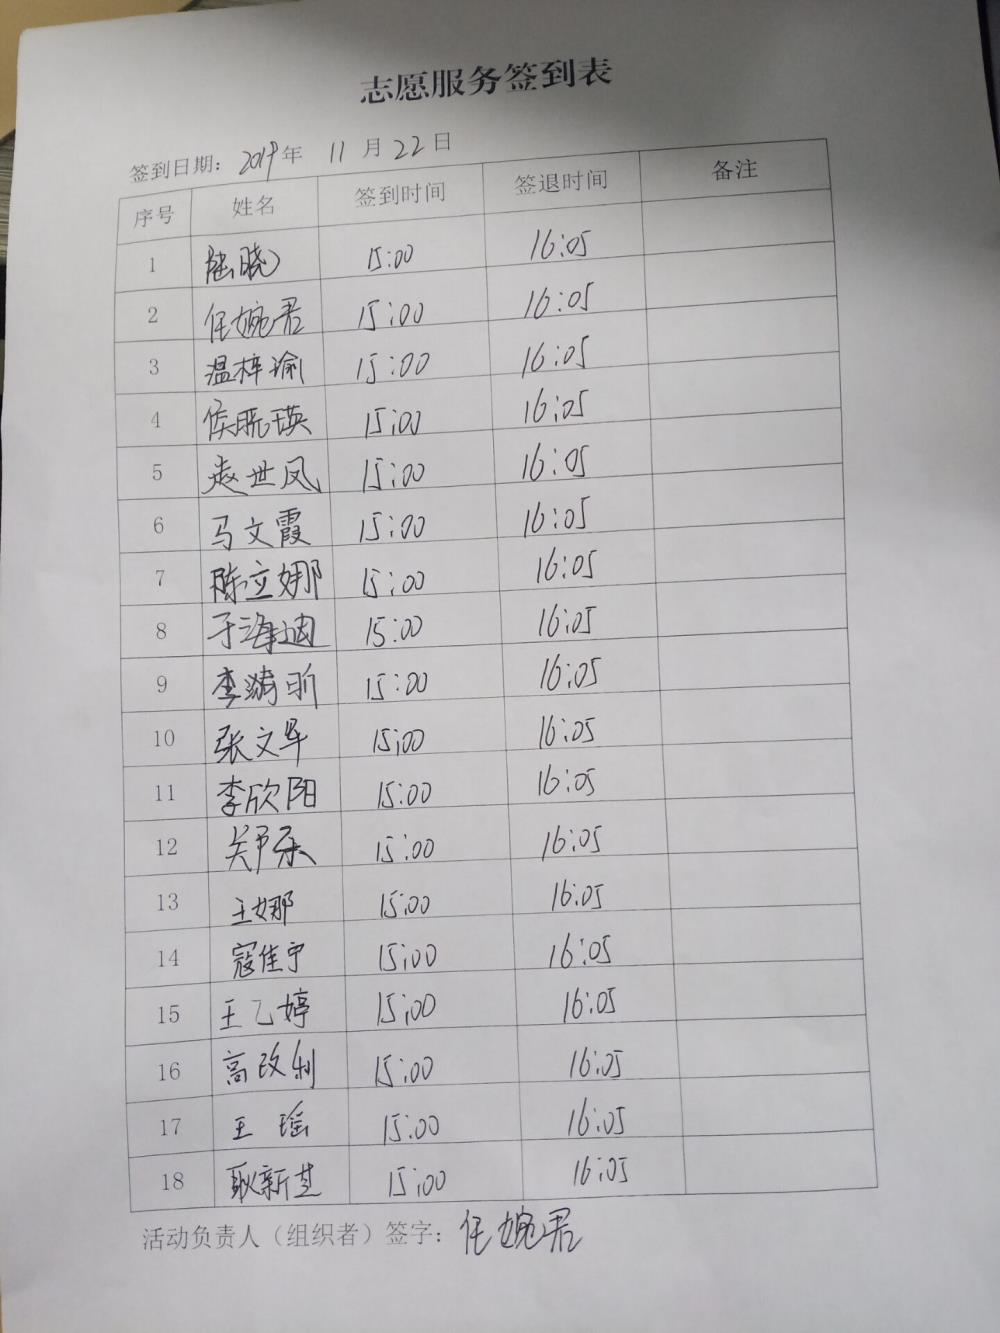 志愿服务签到表
签到日期: 2019年 11月22日
序号 姓名 签到时间 签退时间 备注
1 陆晓 15:00 16:05
2 任婉君 15:00 16:05
3 温梓瑜 15:00 16:05
4 侯晓瑛 15:00 16:05
5 赵世凤 15:00 16:05
6 马文霞 15:00 16:05
7 陈立娜 15:00 16:05
8 于海迪 15:00 16:05
9 李 15:00 16:05
10 张文军 15:00 16:05
11 李欣阳 15:00 16:05
12 15:00 16:05
13 王娜 15:00 16:05
14 寇佳宁 15:00 16:05
15 王乙婷 15:00 16:05
16 高改利 15:00 16:05
17 王瑶 15:00 16:05
18 耿新芝 15:00 16:05
活动负责人（组织者）签字: 任婉君